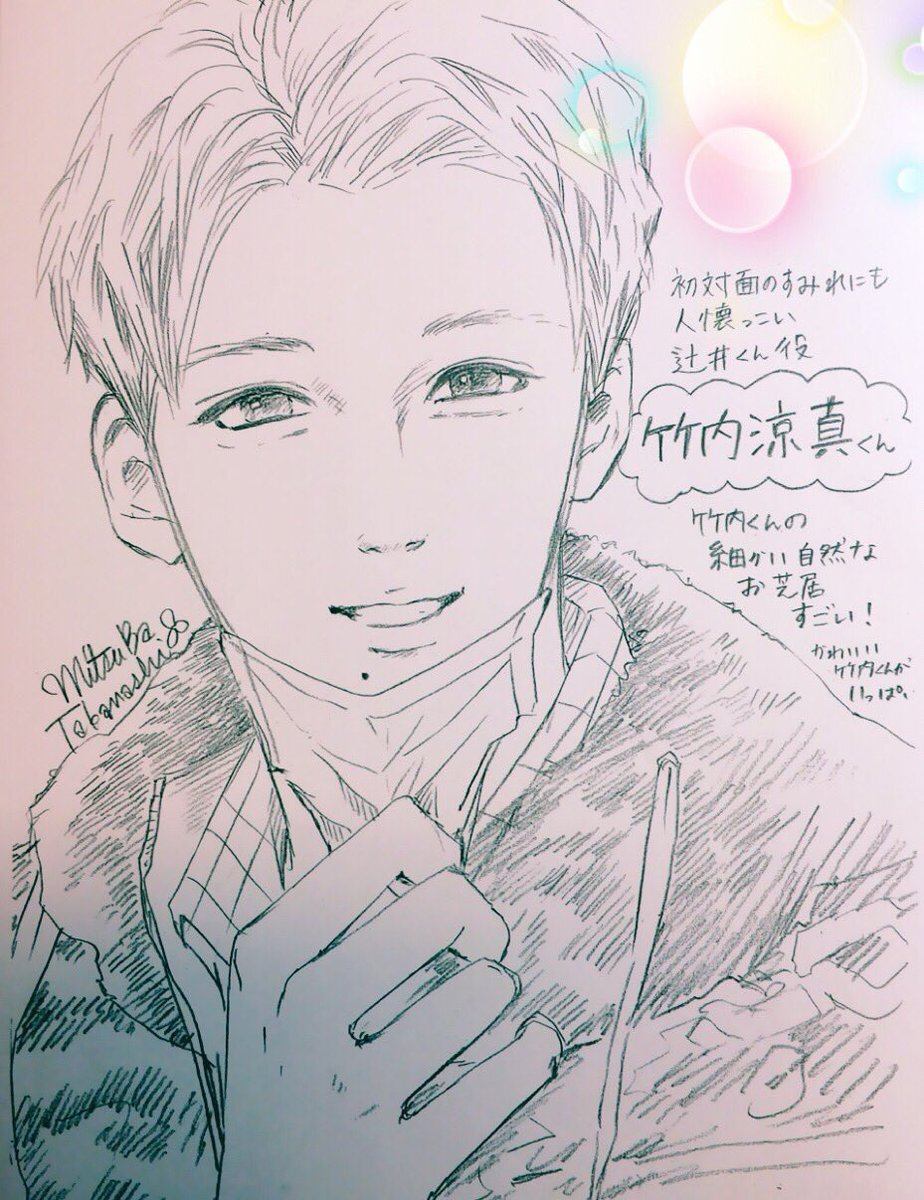 初対面のすみれにも
人懐っこい
辻井くん役
竹内涼真くん
竹内くんの
細かい自然な
お芝居
すごい!
かわいい
竹内くんが
いっぱい
Mitsuba.
Takanashi.